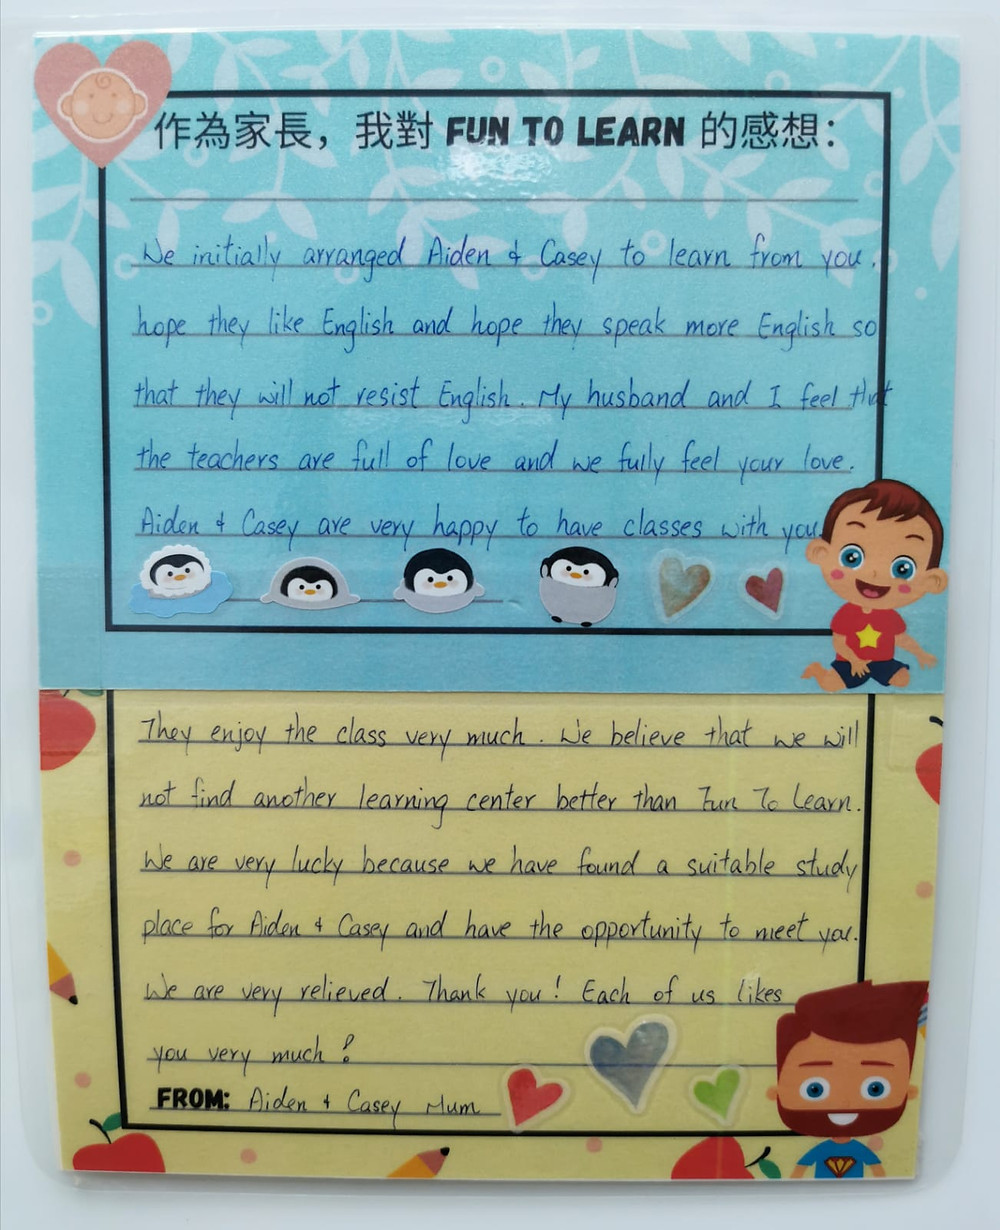 作為家長，我對 FUN TO LEARN 的感想：
We initially arranged Aiden & Casey to learn from you,
hope they like English and hope they speak more English so
that they will not resist English. My husband and I feel that
the teachers are full of love and we fully feel your love.
Aiden & Casey are very happy to have classes with you
They enjoy the class very much. We believe that we will
not find another learning center better than Fun To Learn.
We are very lucky because we have found a suitable study
place for Aiden & Casey and have the opportunity to meet you.
We are very relieved. Thank you! Each of us likes
you very much!
FROM: Aiden & Casey Mum